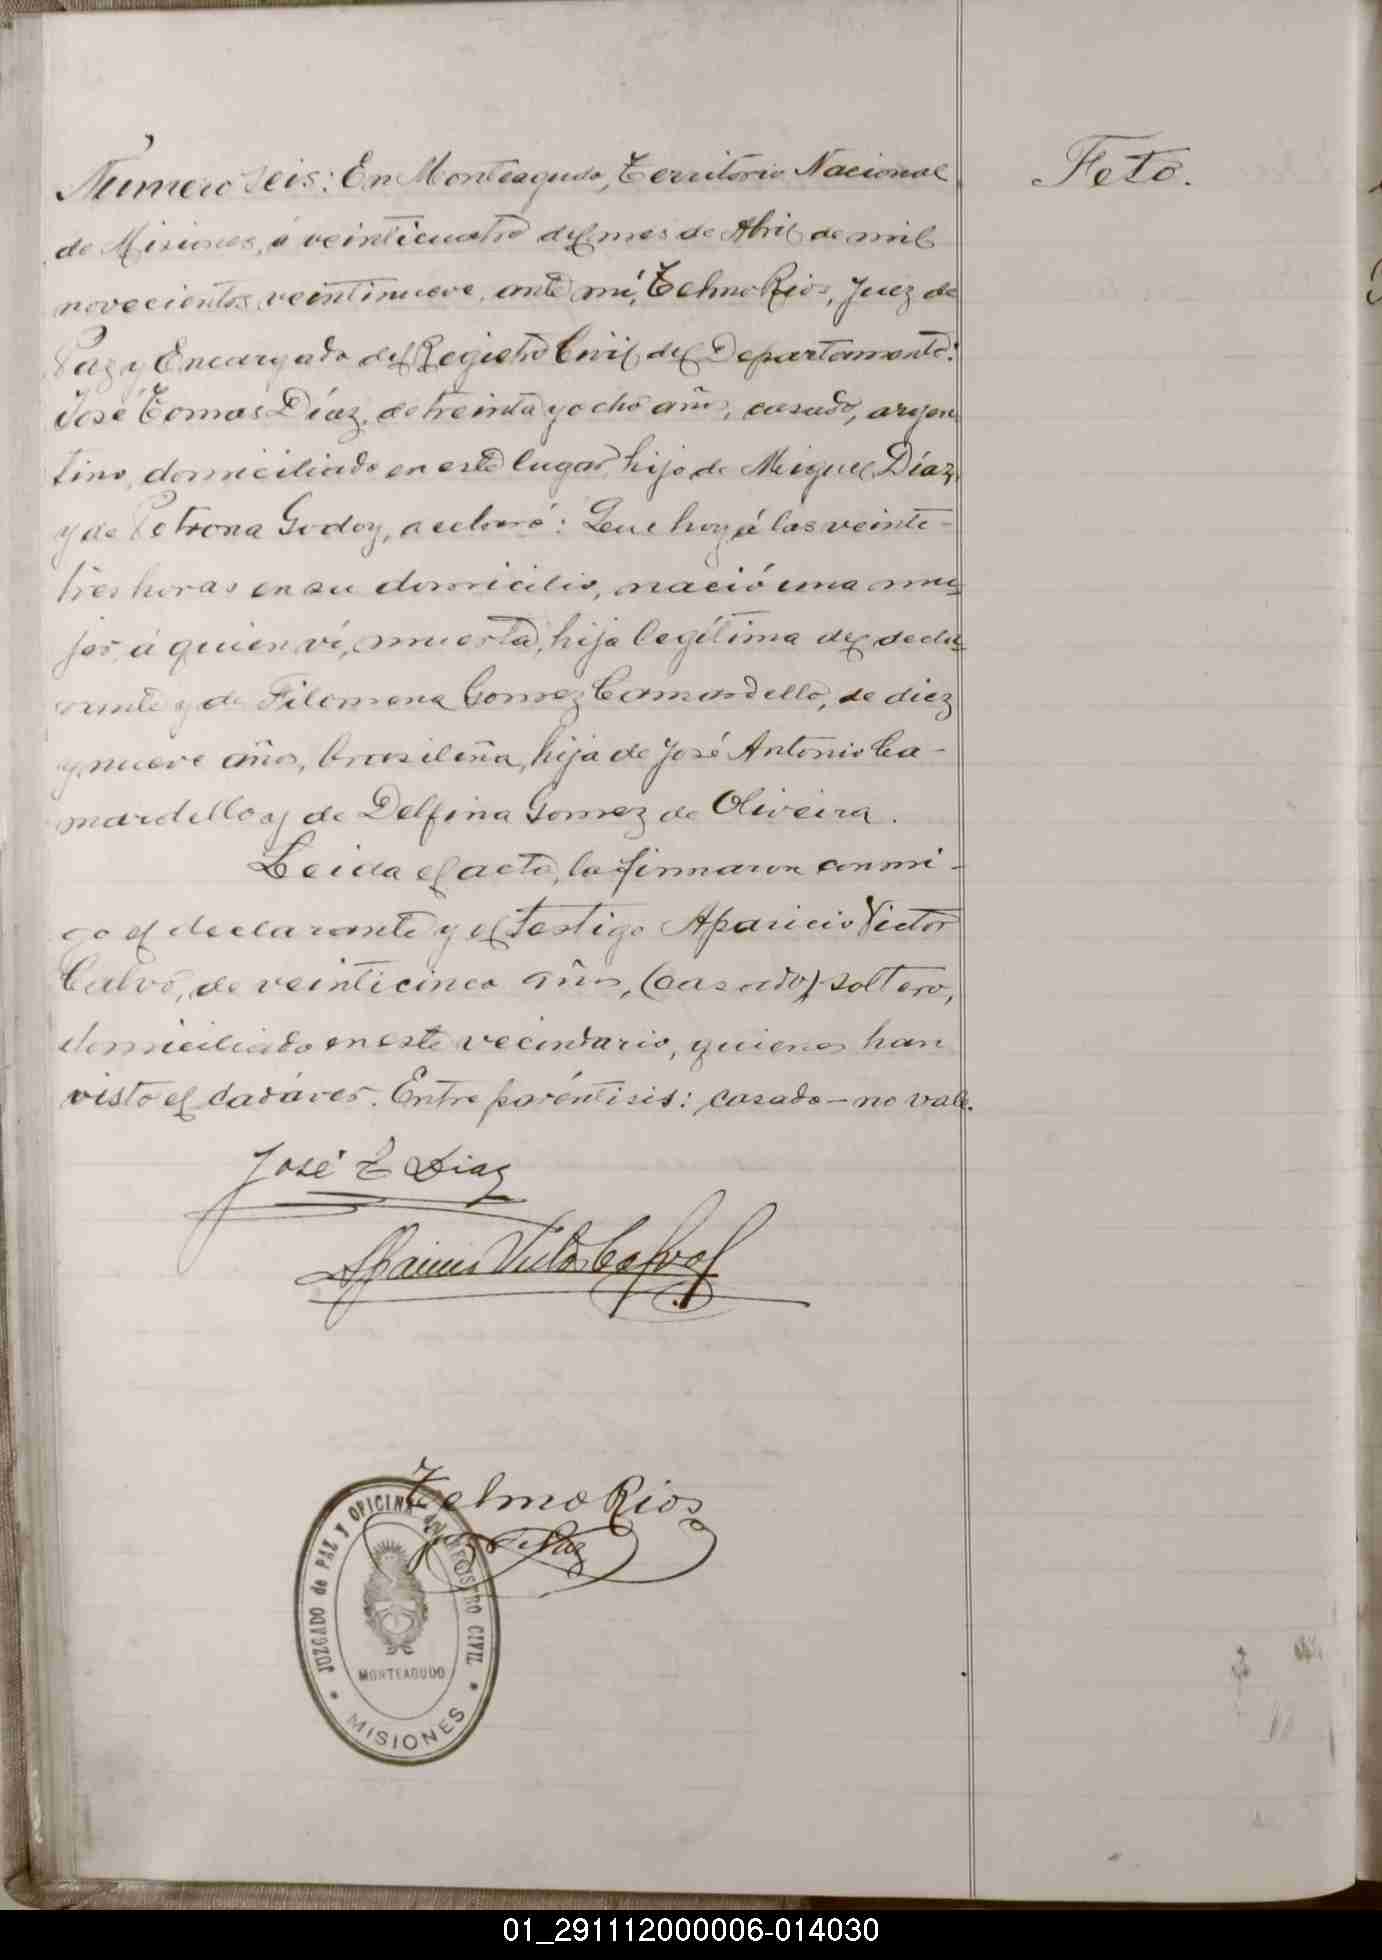 Feto.
Número seis: En Monteagudo, Territorio Nacional
de Misiones, á veinticuatro del mes de Abril de mil
novecientos veintinueve, ante mí, Telmo Rios, Juez de
Paz y Encargado del Registro Civil del Departamento:
José Tomas Díaz, de treinta y ocho años, casado, argen
tino, domiciliado en este lugar, hijo de Miguel Díaz,
y de Petrona Godoy, declaró: Que hoy á las veinte-
tres horas en su domicilio, nació una mu-
jer, á quien ví, muerta, hija legítima del decla-
rante y de Filomena Gomez Camardello, de diez
y nueve años, brasileña, hija de José Antonio Ca-
mardello y de Delfina Gomez de Oliveira.
Leida el acta, la firmaron conmi-
go el declarante y el testigo Aparicio Victor
Calvo, de veinticinco años, (casado) soltero,
domiciliado en este vecindario, quienes han
visto el cadáver. Entre paréntisis: casado - no vale.
José T Diaz
Aparicio Victor Calvo
Telmo Rios
Juez de Paz
JUZGADO de PAZ Y OFICINA del REGISTRO CIVIL
MONTEAGUDO
* MISIONES *
01_291112000006-014030